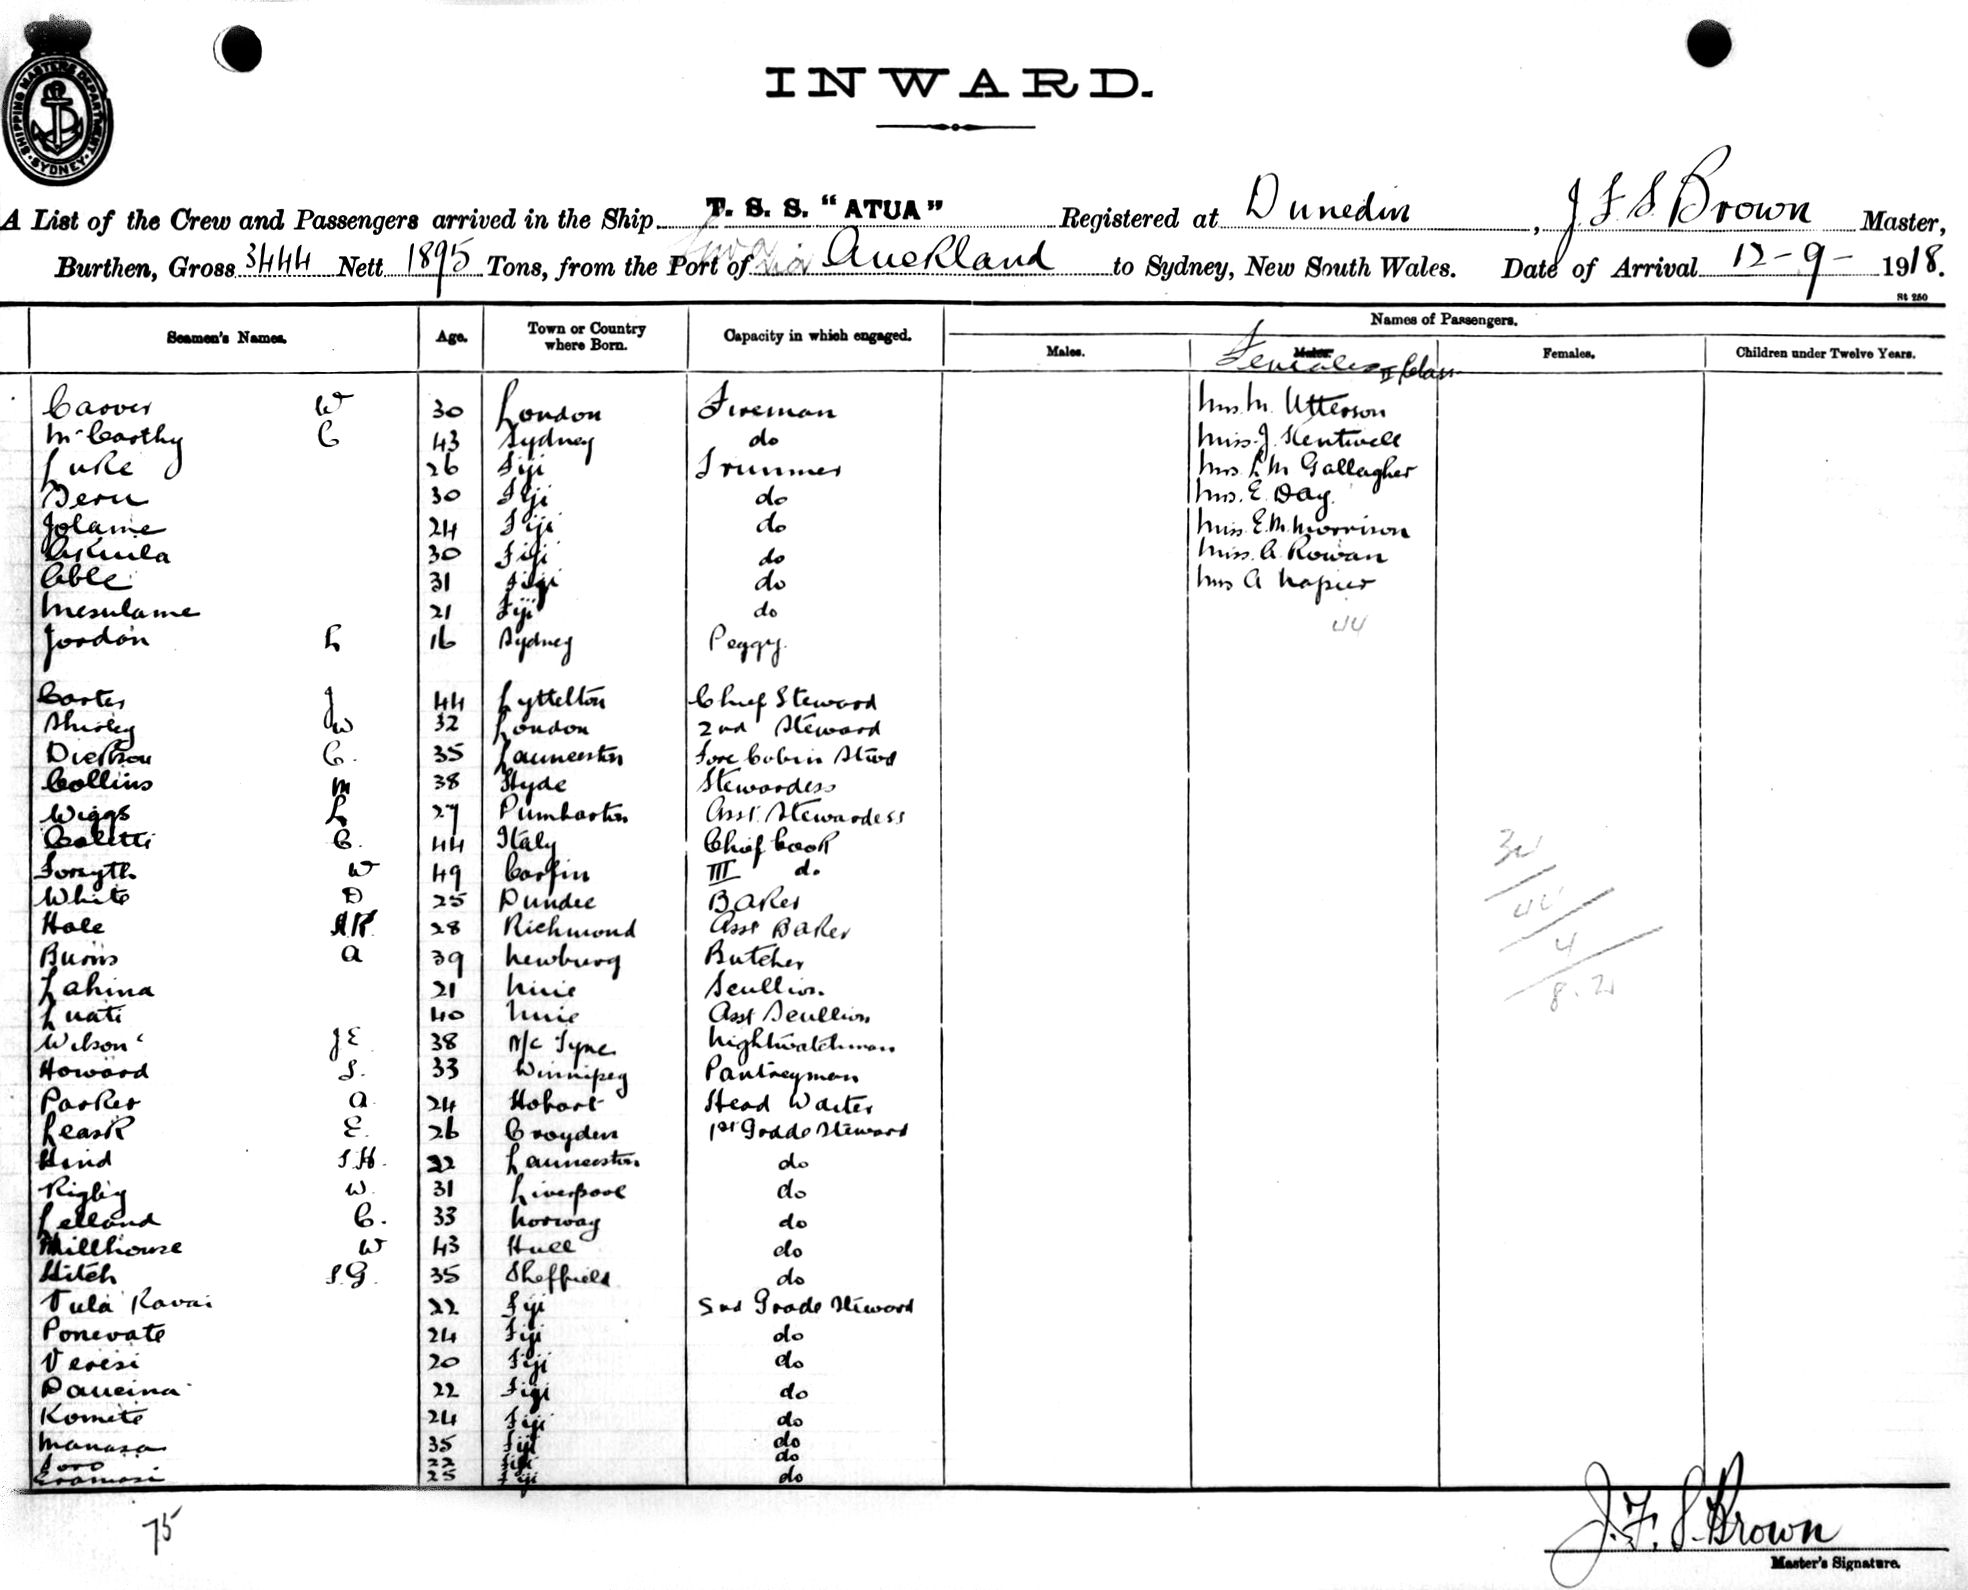 SHIPPING MASTERS DEPARTMENT · SYDNEY ·
INWARD.
A List of the Crew and Passengers arrived in the Ship T. S. S. "ATUA" Registered at Dunedin, J. F. S. Brown Master,
Burthen, Gross 3444 Nett 1895 Tons, from the Port of Suva via Auckland to Sydney, New South Wales. Date of Arrival 12-9-1918.
St 250
Seamen's Names. Age. Town or Country where Born. Capacity in which engaged. Names of Passengers.
Males. Males. Females. Children under Twelve Years.
Females II Class
Carver W 30 London Fireman Mrs. M. Utterson
McCarthy C 43 Sydney do Miss. J. Kentwell
Luke 26 Fiji Trimmer Mrs. L. M Gallagher
Seru 30 Fiji do Mrs. E. Day.
Jolame 24 Fiji do Miss. E. M. Morrison
Askula 30 Fiji do Miss. A. Rowan
Able 31 Fiji do Mrs A Napier
Mesulame 21 Fiji do
44
Jordon L 16 Sydney Peggy.
Carter J 44 Lyttelton Chief Steward
Shirley W 32 London 2nd Steward
Dickson C. 35 Launceston Fore Cabin Stwd
Collins M 38 Hyde Stewardess
Wiggs L 27 Dumbarton Asst. Stewardess
Coletti C. 44 Italy Chief Cook
Forsyth W 49 Carfin III do.
White D 25 Dundee Baker
Hale A.R. 28 Richmond Asst Baker
Burns A 39 Newburg Butcher
Lahina 21 Niue Scullion.
Luati 40 Niue Asst Scullion
Wilson J E 38 N/c Tyne Nightwatchman
Howard S. 33 Winnipeg Pantryman
Parker A 24 Hobart Head Waiter
Leask E. 26 Croyden 1st Grade Steward
Hind S. H. 22 Launceston do
Rigby W. 31 Liverpool do
Lelland C. 33 Norway do
Millhouse W 43 Hull do
Hitch S. G. 35 Sheffield do
Tula Ravai 22 Fiji 2nd Grade Steward
Ponevate 24 Fiji do
Veresi 20 Fiji do
Daucina 22 Fiji do
Komite 24 Fiji do
Manasa 35 Fiji do
22 Fiji do
Eramasi 25 Fiji do
75
J. F. S. Brown
Master's Signature.